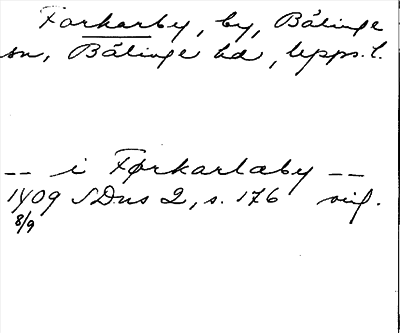 Forkarby, by, Bälinge
sn, Bälinge hd, Upps. l.
-- i Førkarlaby --
1409 SDns 2, s. 176
8/9